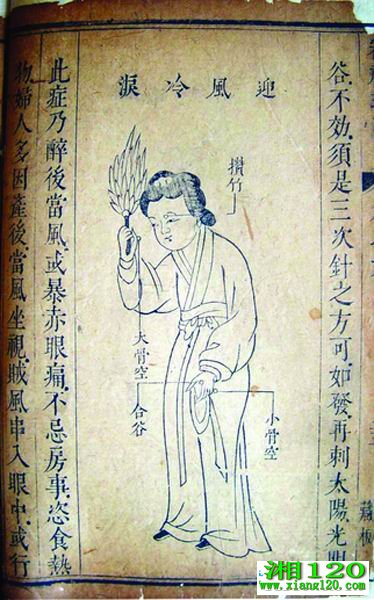 藏板
谷.不效.須是三次針之方可.如發.再刺太陽.光
迎風冷淚
攢竹
小骨空
大骨空
合谷
此症乃醉後當風.或暴赤眼痛.不忌房事.恣食熱
物.婦人多因產後.當風坐視.賊風串入眼中.或行
湘120
www.xiang120.com